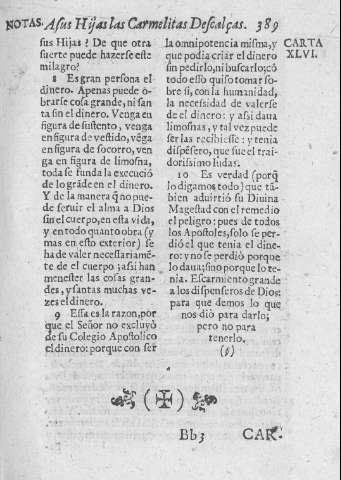 NOTAS. A sus Hijas las Carmelitas Descalças. 389
sus Hijas? De que otra
suerte puede hazerse este
milagro?
8 Es gran persona el
dinero. Apenas puede o-
brarse cosa grande, ni san
ta sin el dinero. Venga en
figura de sustento, venga
en figura de vestido, vēga
en figura de socorro, ven
ga en figura de limosna,
toda se funda la execució
de lo grāde en el dinero.
Y de la manera q̄ no pue-
de seruir el alma a Dios
sin el cuerpo, en esta vida,
y en todo quanto obra (y
mas en esto exterior) se
ha de valer necessariamē-
te de el cuerpo; assi han
menester las cosas gran-
des, y santas muchas ve-
zes el dinero.
9 Essa es la razon, por
que el Señor no excluyó
de su Colegio Apostolico
el dinero: porque con ser
la omnipotencia misma, y
que podia criar el dinero
sin pedirlo, ni buscarlo; cō
todo esso quiso tomar so-
bre si, con la humanidad,
la necessidad de valerse
de el dinero: y assi daua
limosnas, y tal vez puede
ser las recibiesse: y tenia
dispēsero, que fue el trai-
dorissimo Iudas.
10 Es verdad (porq̄
lo digamos todo) que tā-
bien aduirtió su Diuina
Magestad con el remedio
el peligro; pues de todos
los Apostoles, solo se per-
dió el que tenia el dine-
ro: y no se perdiò porque
lo daua; sino porque lo te-
nia. Escarmiento grande
a los dispenseros de Dios:
para que demos lo que
nos diò para darlo;
pero no para
tenerlo.
(§)
CARTA
XLVI.
(✠)
Bb3 CAR-